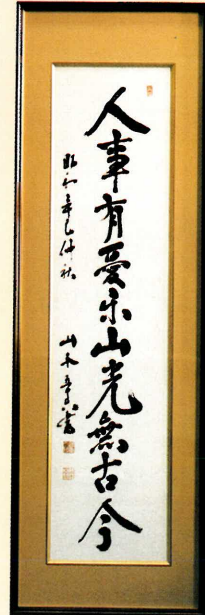 人事有憂楽山光無古今
昭和辛巳仲秋 山本書